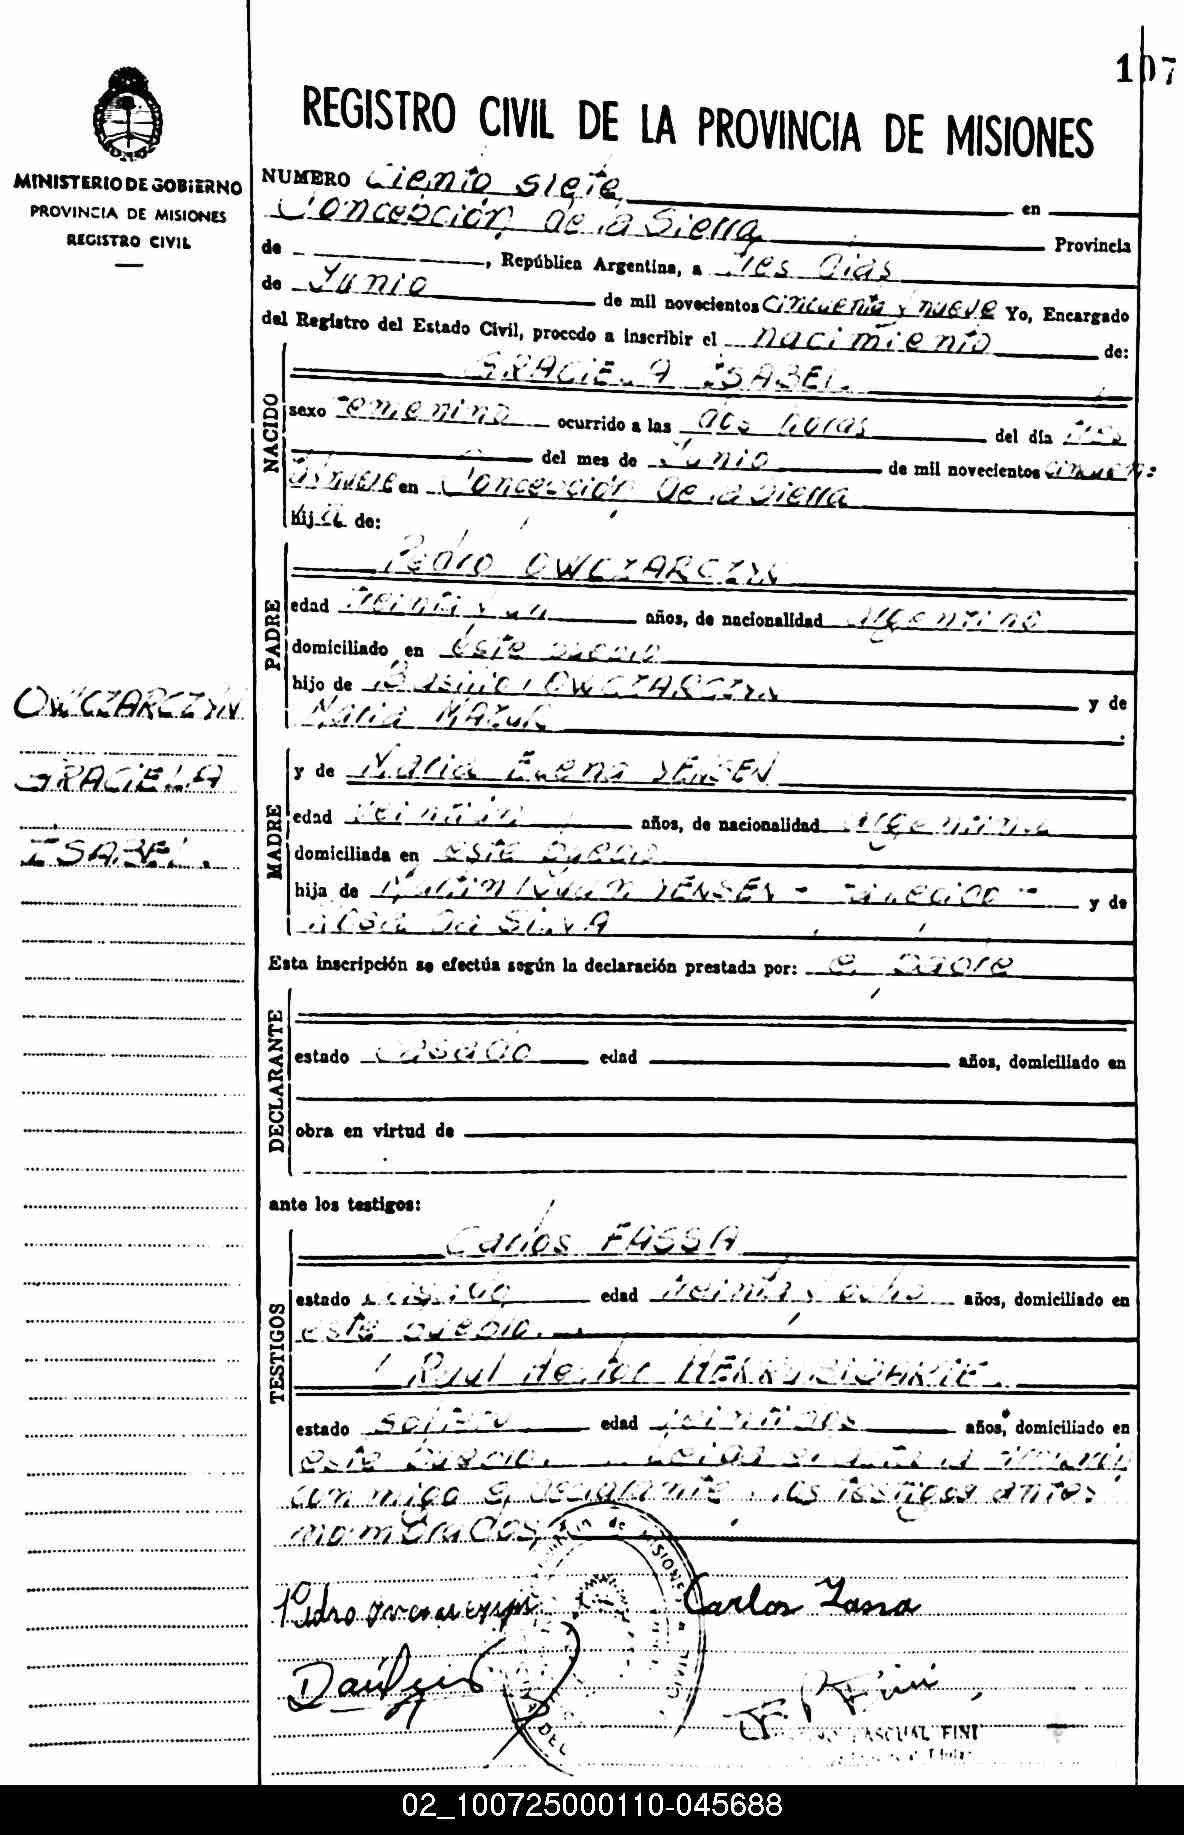 107
REGISTRO CIVIL DE LA PROVINCIA DE MISIONES
MINISTERIO DE GOBIERNO
PROVINCIA DE MISIONES
REGISTRO CIVIL
NUMERO Ciento siete en
Concepción de la Sierra Provincia
de , República Argentina, a Tres días
de Junio de mil novecientos cincuenta y nueve Yo, Encargado
del Registro del Estado Civil, procedo a inscribir el nacimiento de:
NACIDO
GRACIELA ISABEL
sexo Femenino ocurrido a las dos horas del día tres
del mes de Junio de mil novecientos
nueve en Concepción de la Sierra
hija de:
PADRE
Pedro OWCZARCZYN
edad treinta y un años, de nacionalidad Argentino
domiciliado en este pueblo
hijo de OWCZARCZYN y de
María MAZUR
OWCZARCZYN
GRACIELA
ISABEL.
MADRE
y de María Elena JENSEN
edad años, de nacionalidad Argentina
domiciliada en este pueblo
hija de JENSEN - fallecido - y de
Rosa Da SILVA
Esta inscripción se efectúa según la declaración prestada por: el padre
DECLARANTE
estado casado edad años, domiciliado en
obra en virtud de
ante los testigos:
TESTIGOS
Carlos FASSA
estado casado edad treinta y ocho años, domiciliado en
este pueblo.
Raul Hector
estado soltero edad años, domiciliado en
este pueblo. Leída el acta la
conmigo el declarante y los testigos antes
nombrados
Carlos Fassa
F. P. Fini
PASCUAL FINI
02_100725000110-045688